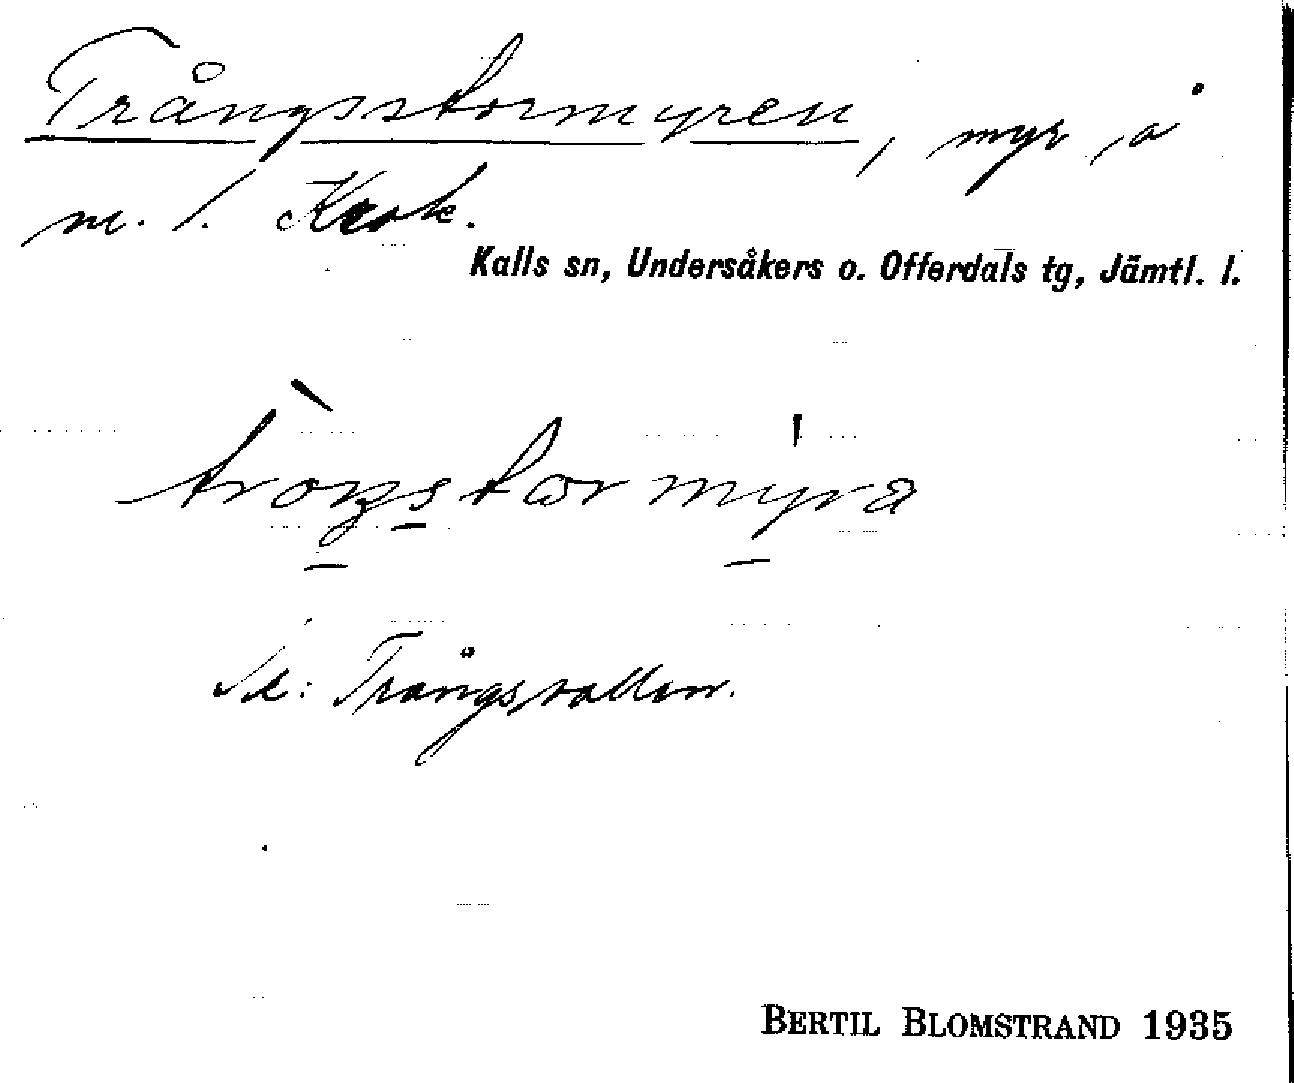 Trångsstormyren, myr, å
m. l. Krok.
Kalls sn, Undersåkers o. Offerdals tg, Jämtl. l.
tròŋstɷrmýra
Se: Trångsvallen.
BERTIL BLOMSTRAND 1935